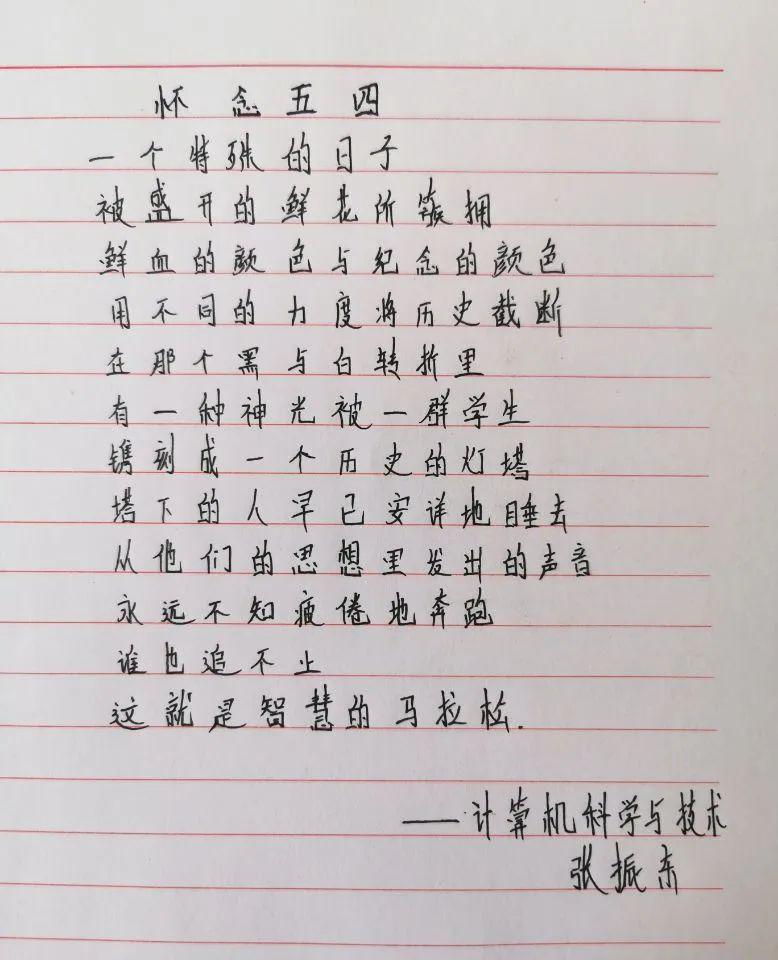 怀念五四
一个特殊的日子
被盛开的鲜花所簇拥
鲜血的颜色与纪念的颜色
用不同的力度将历史截断
在那个黑与白转折里
有一种神光被一群学生
镌刻成一个历史的灯塔
塔下的人早已安详地睡去
从他们的思想里发出的声音
永远不知疲倦地奔跑
谁也追不上
这就是智慧的马拉松.
——计算机科学与技术
张振东